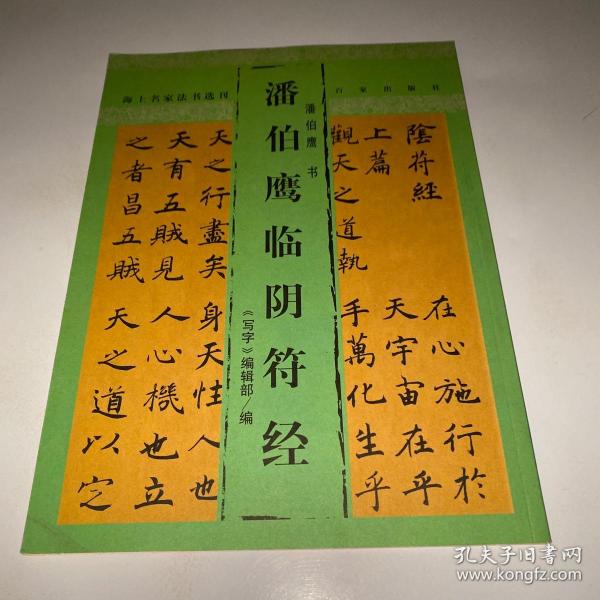 海上名家法书选刊
百家出版社
潘伯鹰临阴符经
潘伯鹰 书
《写字》编辑部／编
陰符經
上篇
觀天之道執
天之行盡矣
天有五賊見
之者昌五賊
在心施行於
天宇宙在乎
手萬化生乎
身天性人也
人心機也立
天之道以定
孔夫子旧书网
www.kongfz.com